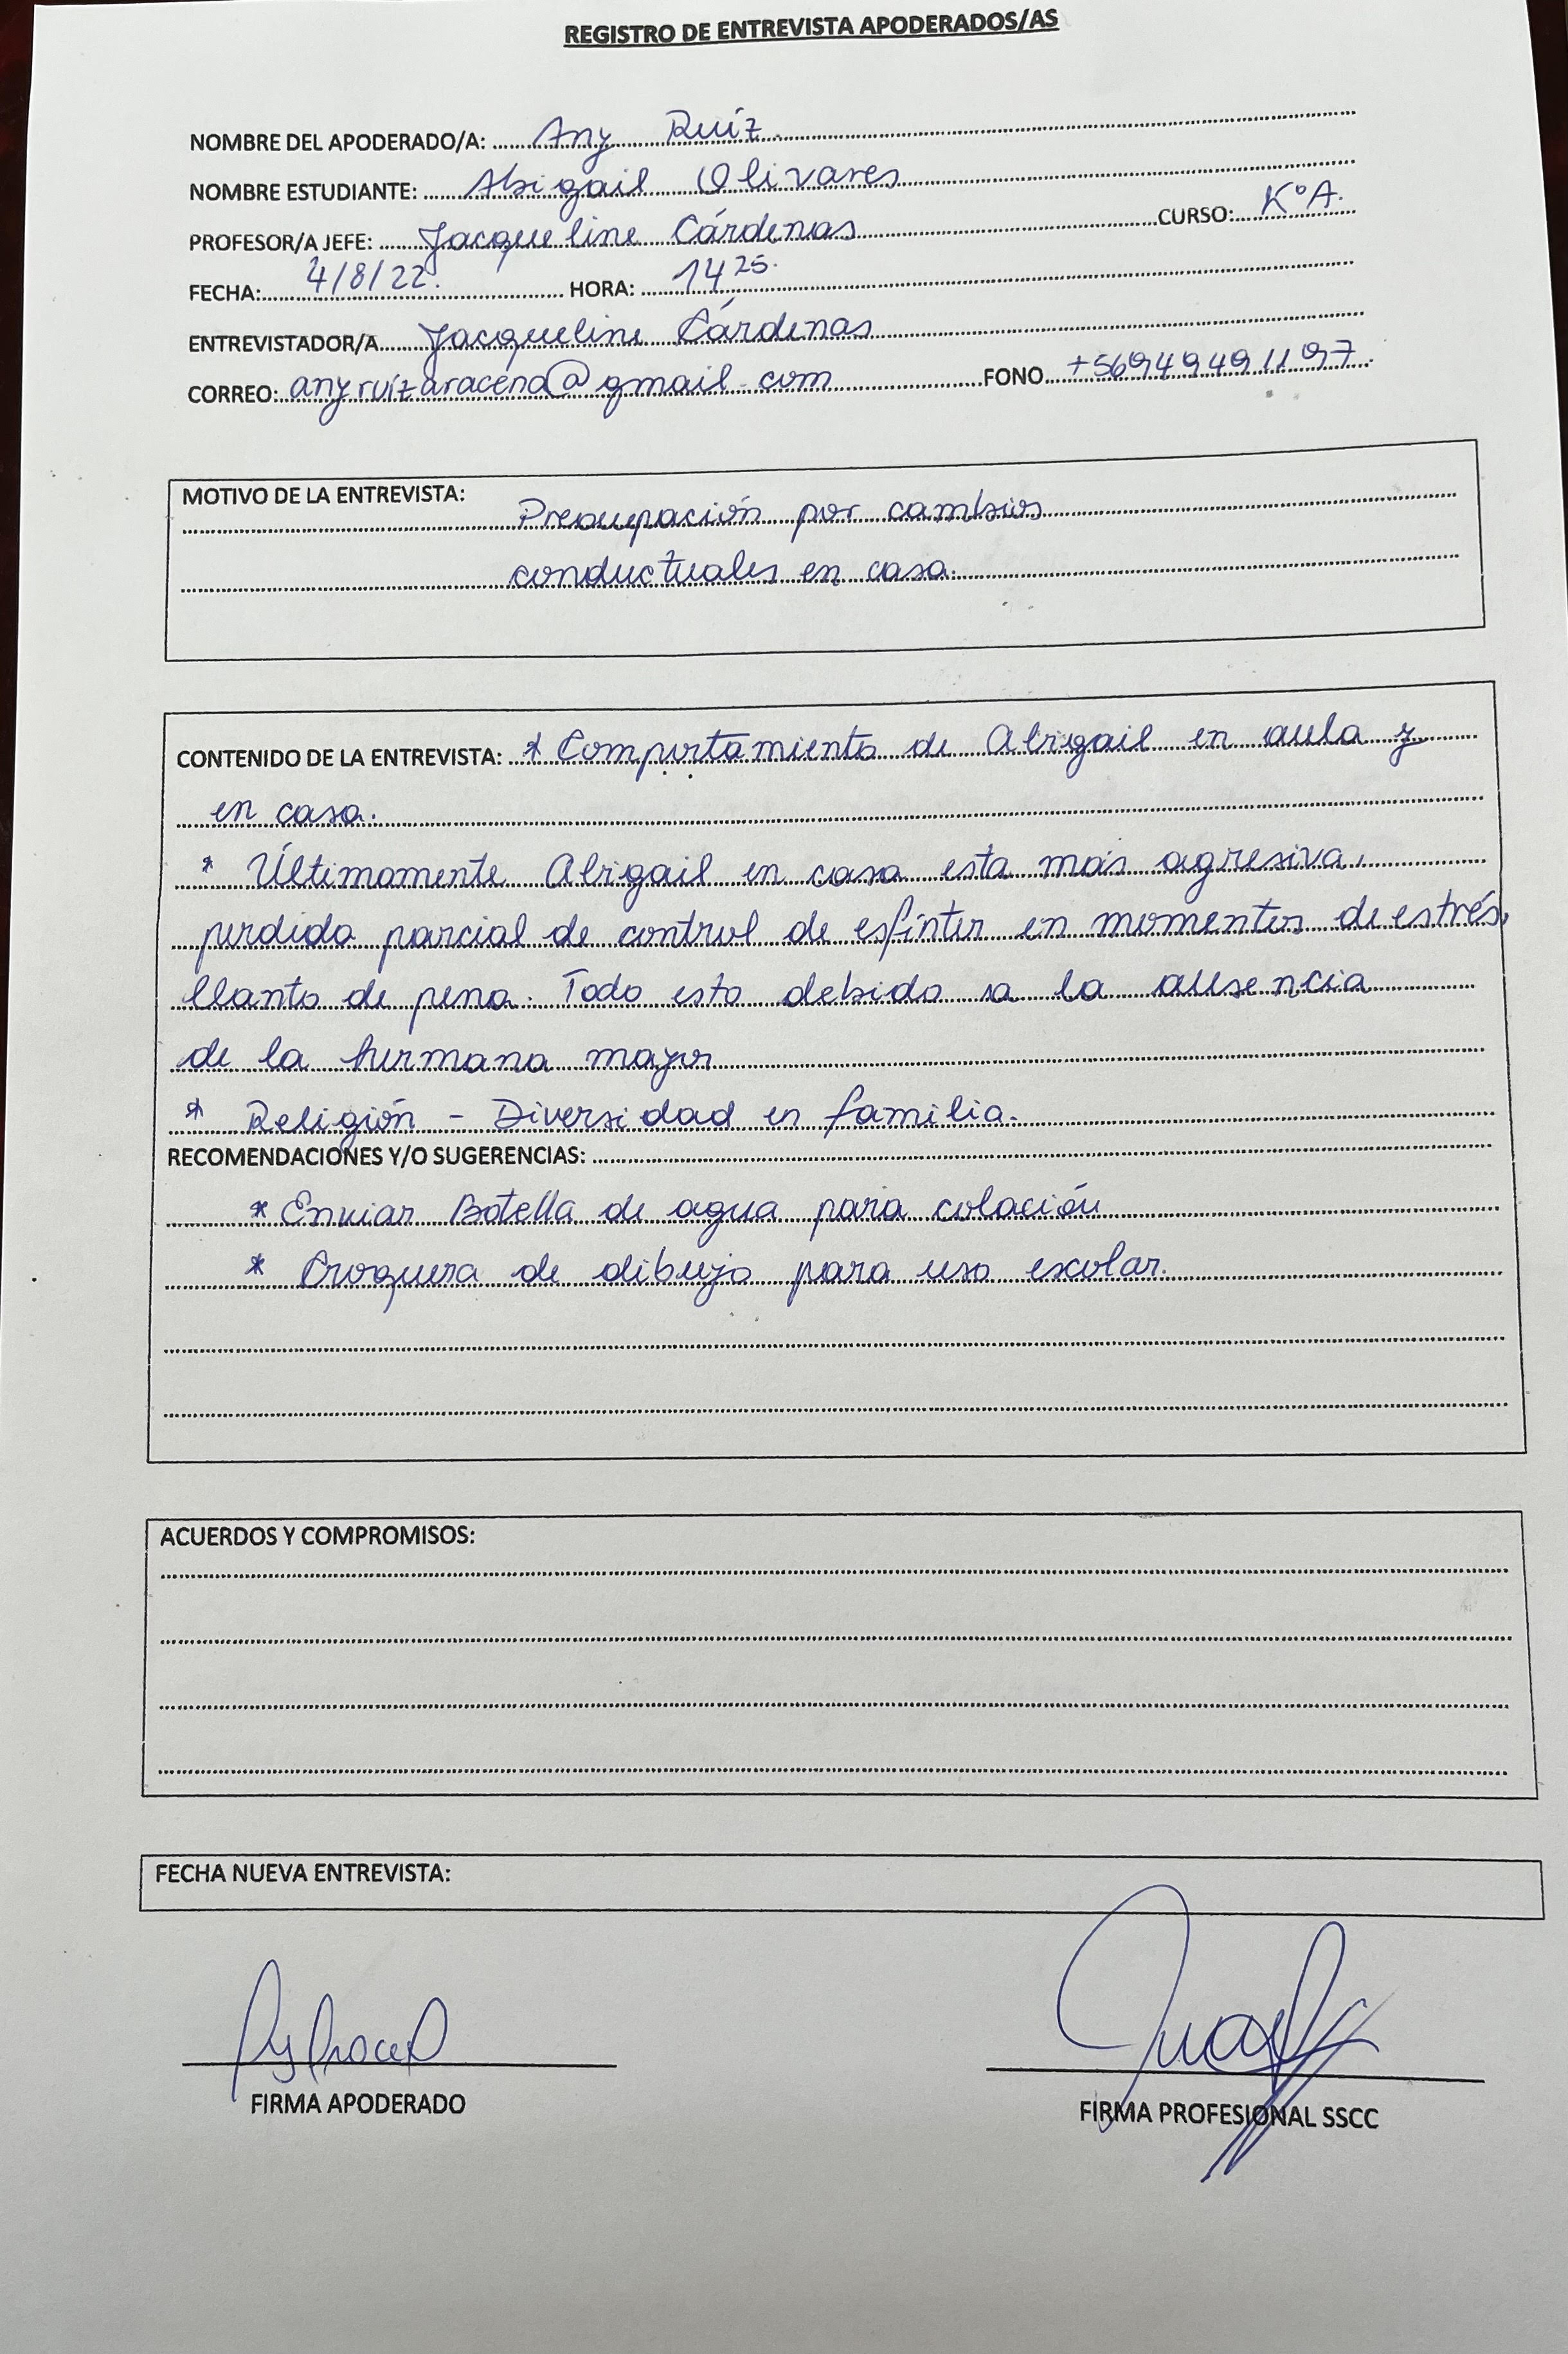 REGISTRO DE ENTREVISTA APODERADOS/AS
NOMBRE DEL APODERADO/A: Any Ruíz
NOMBRE ESTUDIANTE: Abigail Olivares
PROFESOR/A JEFE: Jacqueline Cárdenas CURSO: K°A.
FECHA: 4/8/22. HORA: 14 25.
ENTREVISTADOR/A Jacqueline Cárdenas
CORREO: anyruizaracena@gmail.com FONO +56949491197
MOTIVO DE LA ENTREVISTA: Preocupación por cambios
conductuales en casa.
CONTENIDO DE LA ENTREVISTA: * Comportamiento de Abigail en aula y
en casa.
* Últimamente Abigail en casa esta más agresiva,
perdida parcial de control de esfínter en momentos de estrés,
llanto de pena. Todo esto debido a la ausencia
de la hermana mayor
* Religión - Diversidad en familia.
RECOMENDACIONES Y/O SUGERENCIAS:
* Enviar Botella de agua para colación
* Croquera de dibujo para uso escolar.
ACUERDOS Y COMPROMISOS:
FECHA NUEVA ENTREVISTA:
FIRMA APODERADO
FIRMA PROFESIONAL SSCC